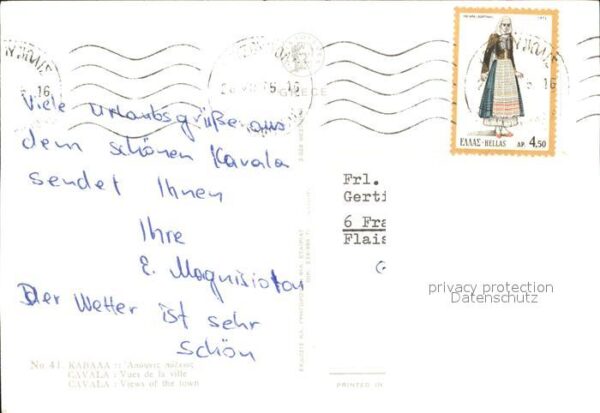 Viele Urlaubsgrüße aus
dem schönen Kavala
sendet Ihnen
Ihre
E.
Der Wetter ist sehr
schön
No 41. ΚΑΒΑΛΑ :
CAVALA : Vues de la ville
CAVALA : Views of the town
1975
ΕΛΛΑΣ-HELLAS ΔΡ. 4,50
Frl.
Gerti
6 Fra
Flais
privacy protection
Datenschutz
PRINTED IN